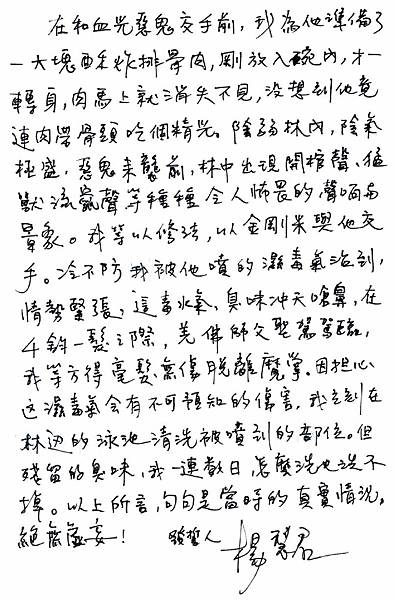 在和血光惡鬼交手前，我為他準備了
一大塊酥炸排骨肉，剛放入碗內，才一
轉身，肉馬上就消失不見，沒想到他竟
連肉帶骨頭吃個精光。陰弱林內，陰氣
極盛，惡鬼未襲前，林中出現開棺聲、猛
獸流竄聲等種種令人怖畏的聲响与
景象。我等以修法，以金剛米與他交
手。冷不防我被他噴的濕毒氣沾到，
情勢緊張，這毒水氣，臭味冲天嗆鼻，在
千鈞一髮之際，羌佛師父聖駕駕臨，
我等方得毫髮無傷脫離魔掌。因担心
这濕毒氣会有不可預知的傷害，我立刻在
林边的泳池清洗被噴到的部位。但
殘留的臭味，我一連數日，怎麼洗也洗不
掉。以上所言，句句是當時的真實情況，
絕無虛妄！ 發誓人 楊慧君